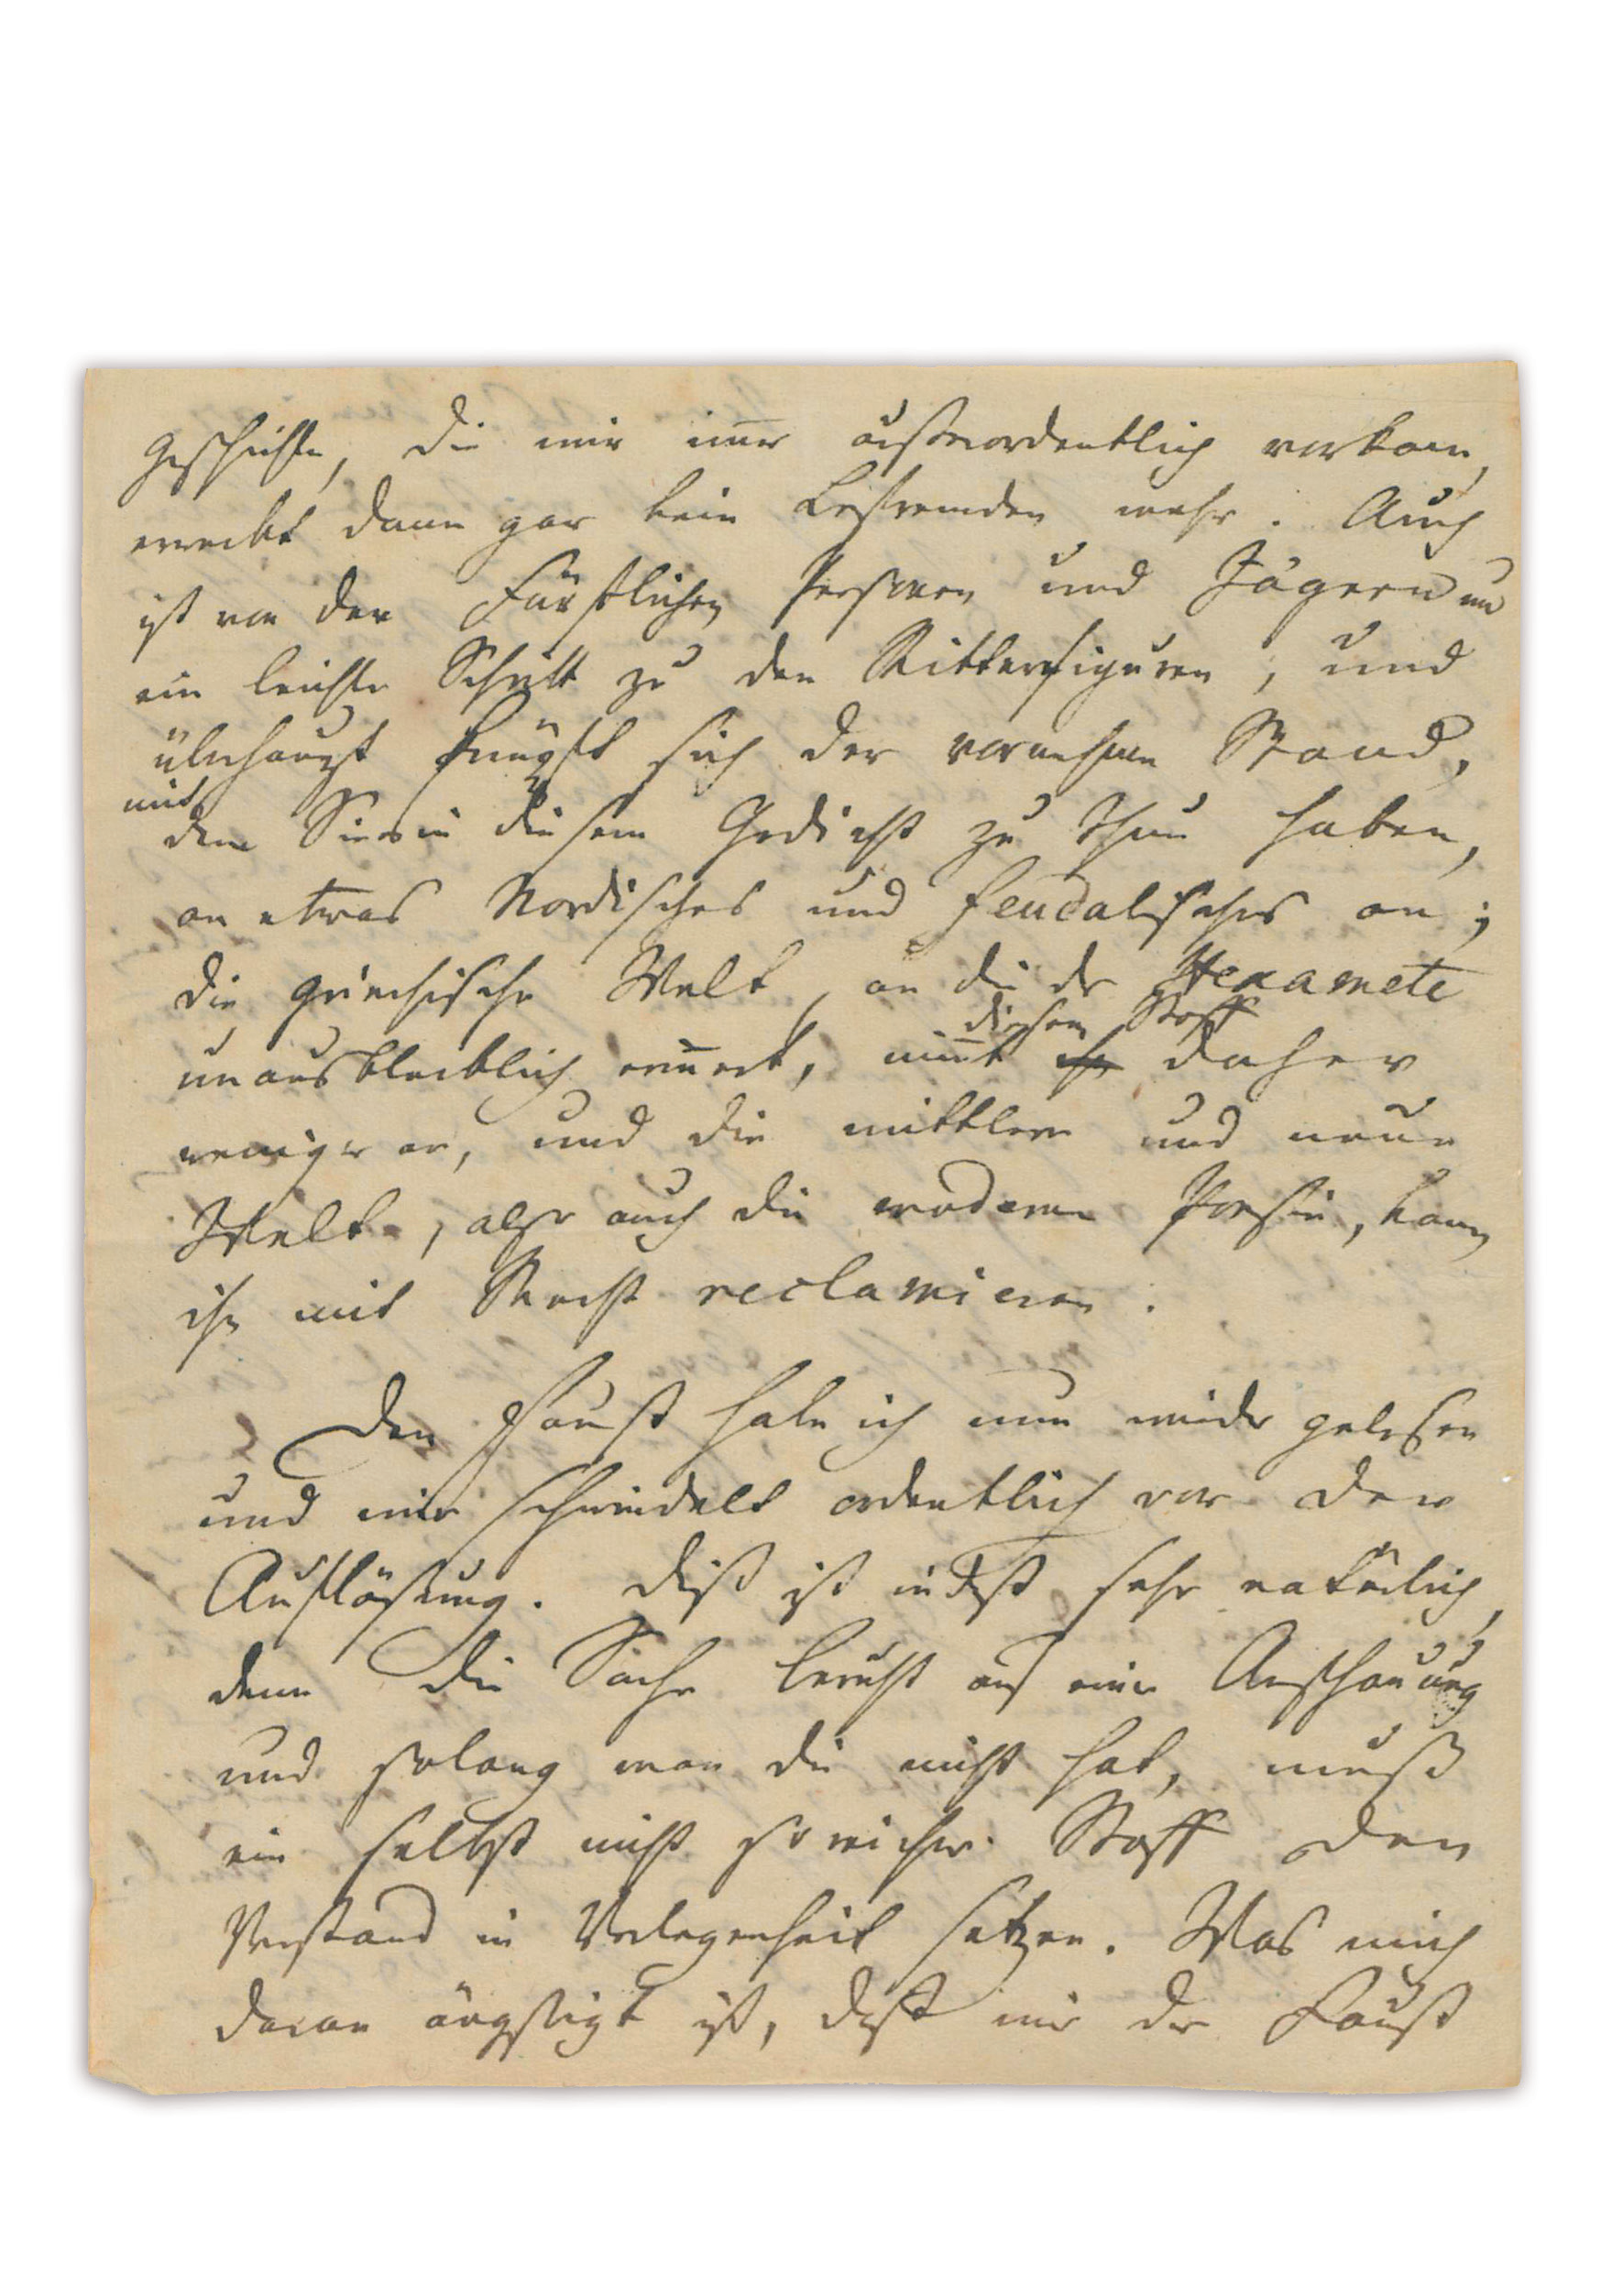 Geschichte, die mir immer außerordentlich vorkam,
erweckt dann gar kein Befremden mehr. Auch
ist von den Fürstlichen Personen und Jägern nur
ein leichter Schritt zu den Ritterfiguren, und
überhaupt knüpft sich der vornehme Stand,
mit
dem Sie es in diesem Gedicht zu thun haben,
an etwas Nordisches und feudalisches an;
die griechische Welt, an die der Hexameter
diesen Stoff
unausbleiblich erinnert, nimmt ihn daher
weniger an, und die mittlere und neue
Welt, also auch die moderne Poesie, kann
ihn mit Recht reclamieren.
Den Faust habe ich nun wieder gelesen
und mir schwindelt ordentlich vor der
Auflösung. Dieß ist indeß sehr natürlich,
denn die Sache beruht auf einer Anschauung
und solang man die nicht hat, muß
ein selbst nicht so reicher Stoff den
Verstand in Verlegenheit setzen. Was mich
daran ängstigt ist, daß mir der Faust